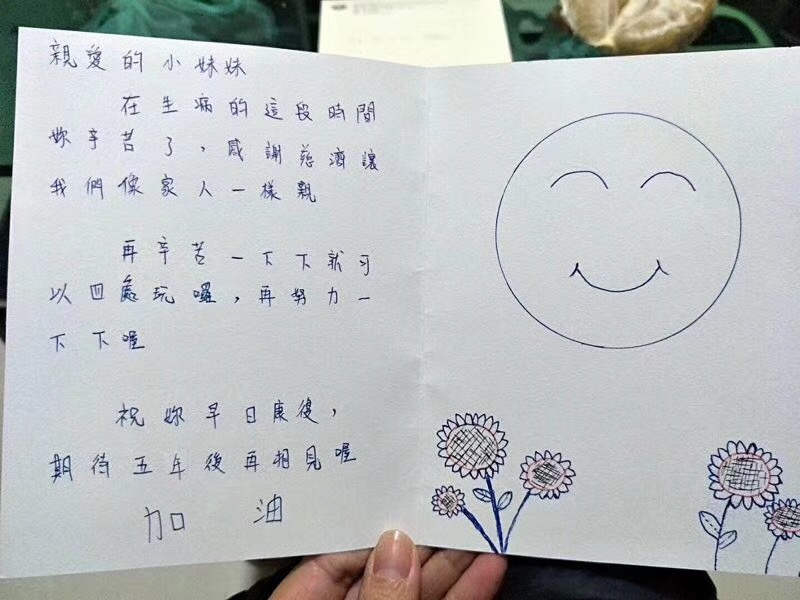 親愛的小妹妹
在生病的這段時間
妳辛苦了，感謝慈濟讓
我們像家人一樣親
再辛苦一下下就可
以四處玩囉，再努力一
下下喔
祝妳早日康復，
期待五年後再相見喔
加油